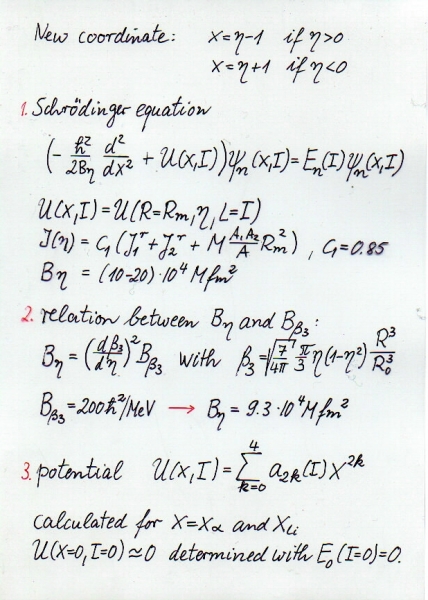 New coordinate: x=η-1 if η>0
x=η+1 if η<0
1. Schrödinger equation
(-ħ²/2Bη d²/dx² + U(x,I))ψn(x,I)=En(I)ψn(x,I)
U(x,I)=U(R=Rm,η,L=I)
J(η)=C₁(J₁ʳ+J₂ʳ+M A₁A₂/A Rm²), C₁=0.85
Bη = (10-20)·10⁴ M fm²
2. relation between Bη and Bβ₃:
Bη=(dβ₃/dη)²Bβ₃ with β₃=√7/4π π/3 η(1-η²) R³/R₀³
Bβ₃=200ħ²/MeV → Bη=9.3·10⁴M fm²
3. potential U(x,I)=∑k=0⁴ a2k(I)x²ᵏ
calculated for x=xα and xLi
U(x=0,I=0)≃0 determined with E₀(I=0)=0.